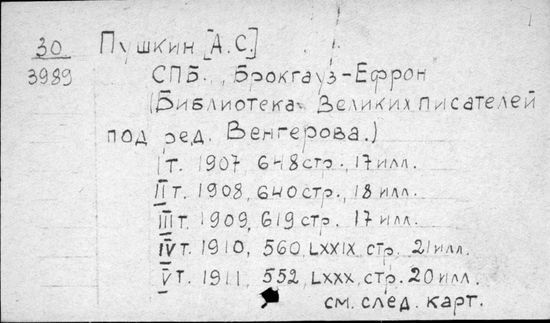 30 Пушкин [А.С]
3989 СПБ., Брокгауз-Ефрон
(Библиотека Великих писателей
под ред. Венгерова.)
I т. 1907, 648 стр., 17 илл.
II т. 1908, 640 стр., 18 илл.
III т. 1909, 619 стр. 17 илл.
IV т. 1910, 560, LXXIX, стр. 21 илл.
V т. 1911, 552, LXXX, стр. 20 илл.
см. след. карт.